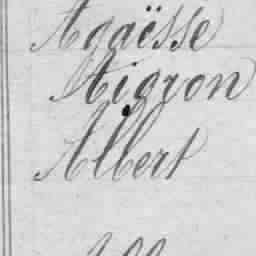 Agaësse
Aigron
Albert